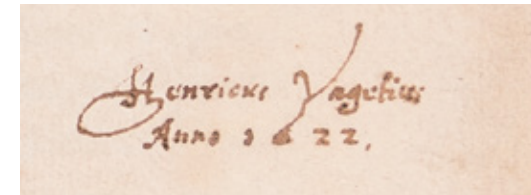 Henricus Vagetius
Anno 1622.